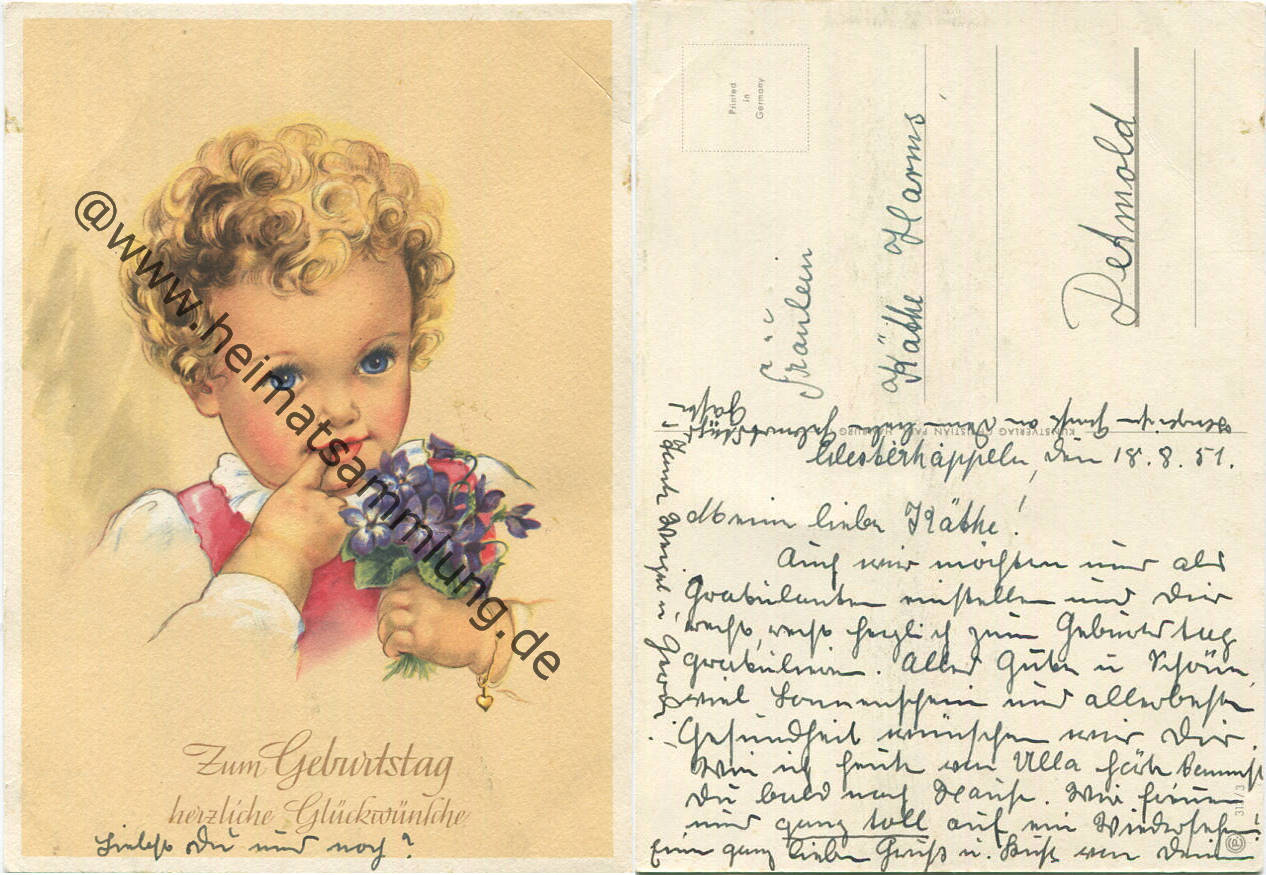 @www.heimatsammlung.de
Zum Geburtstag
herzliche Glückwünsche
Liebst Du uns noch?
Printed
in
Germany
Fräulein
Käthe Harms
Detmold
KUNSTVERLAG
Westerkappeln, den 18.8.51.
Meine liebe Käthe!
Auch wir möchten uns als
Gratulanten einstellen und Dir
recht, recht herzlich zum Geburtstag
gratulieren. Alles Gute u. Schöne,
viel Sonnenschein und allerbeste
Gesundheit wünschen wir Dir.
Wie ich heute von Ulla hörte kommst
Du bald nach Hause. Wir freuen
uns ganz toll auf ein Wiedersehen!
Einen ganz lieben Gruß u. Kuß von Deiner
311/3